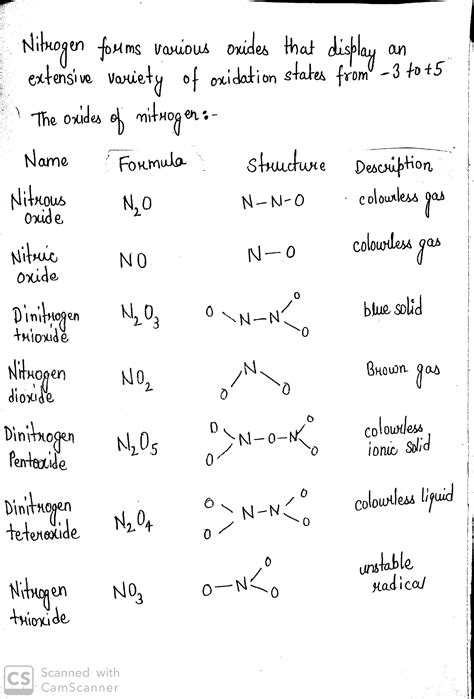 Nitrogen forms various oxides that display an
extensive variety of oxidation states from -3 to +5
The oxides of nitrogen:-
Name Formula Structure Description
Nitrous oxide N₂O N-N-O colourless gas
Nitric oxide NO N-O colourless gas
Dinitrogen trioxide N₂O₃ O N-N O O blue solid
Nitrogen dioxide NO₂ N O O Brown gas
Dinitrogen Pentoxide N₂O₅ O O N-O-N O O colourless ionic solid
Dinitrogen teteroxide N₂O₄ O O N-N O O colourless liquid
Nitrogen trioxide NO₃ O-N O O unstable radical
CS Scanned with
CamScanner